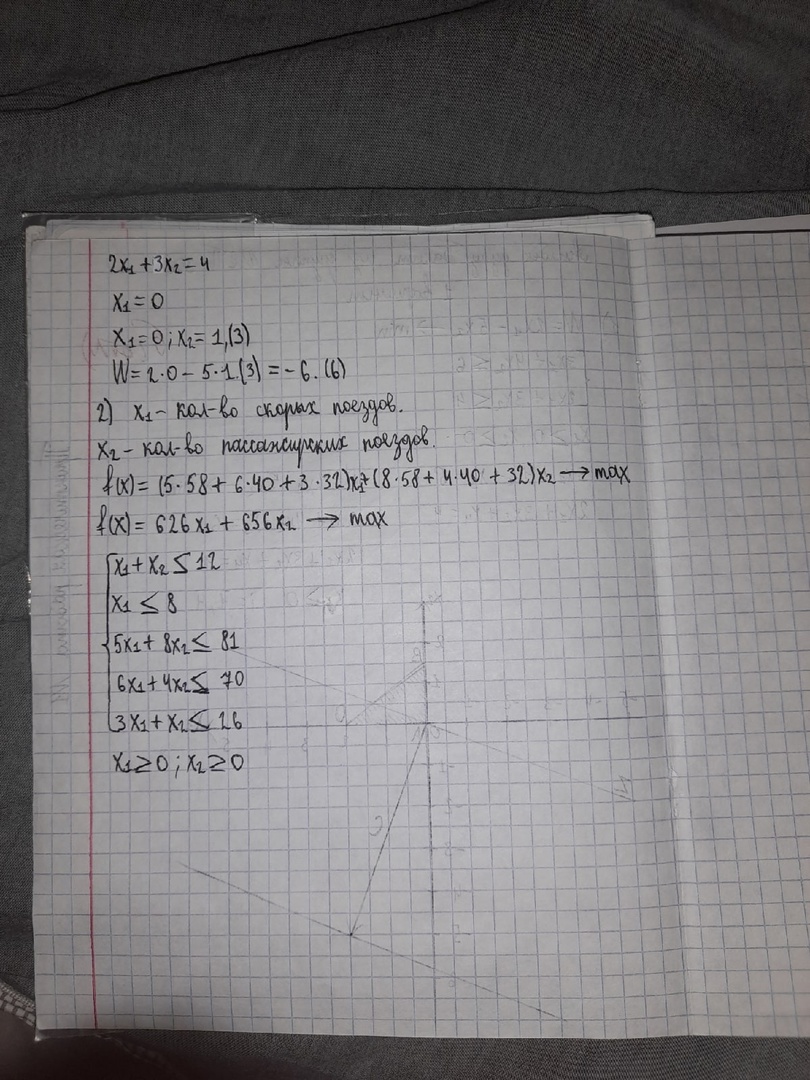 2x₁+3x₂=4
x₁=0
x₁=0; x₂=1,(3)
W=2·0-5·1,(3)=-6.(6)
2) x₁- кол-во скорых поездов.
x₂- кол-во пассажирских поездов.
f(x)=(5·58+6·40+3·32)x₁+(8·58+4·40+32)x₂→max
f(x)=626x₁+656x₂→max
x₁+x₂≤12
x₁≤8
5x₁+8x₂≤81
6x₁+4x₂≤70
3x₁+x₂≤26
x₁≥0; x₂≥0